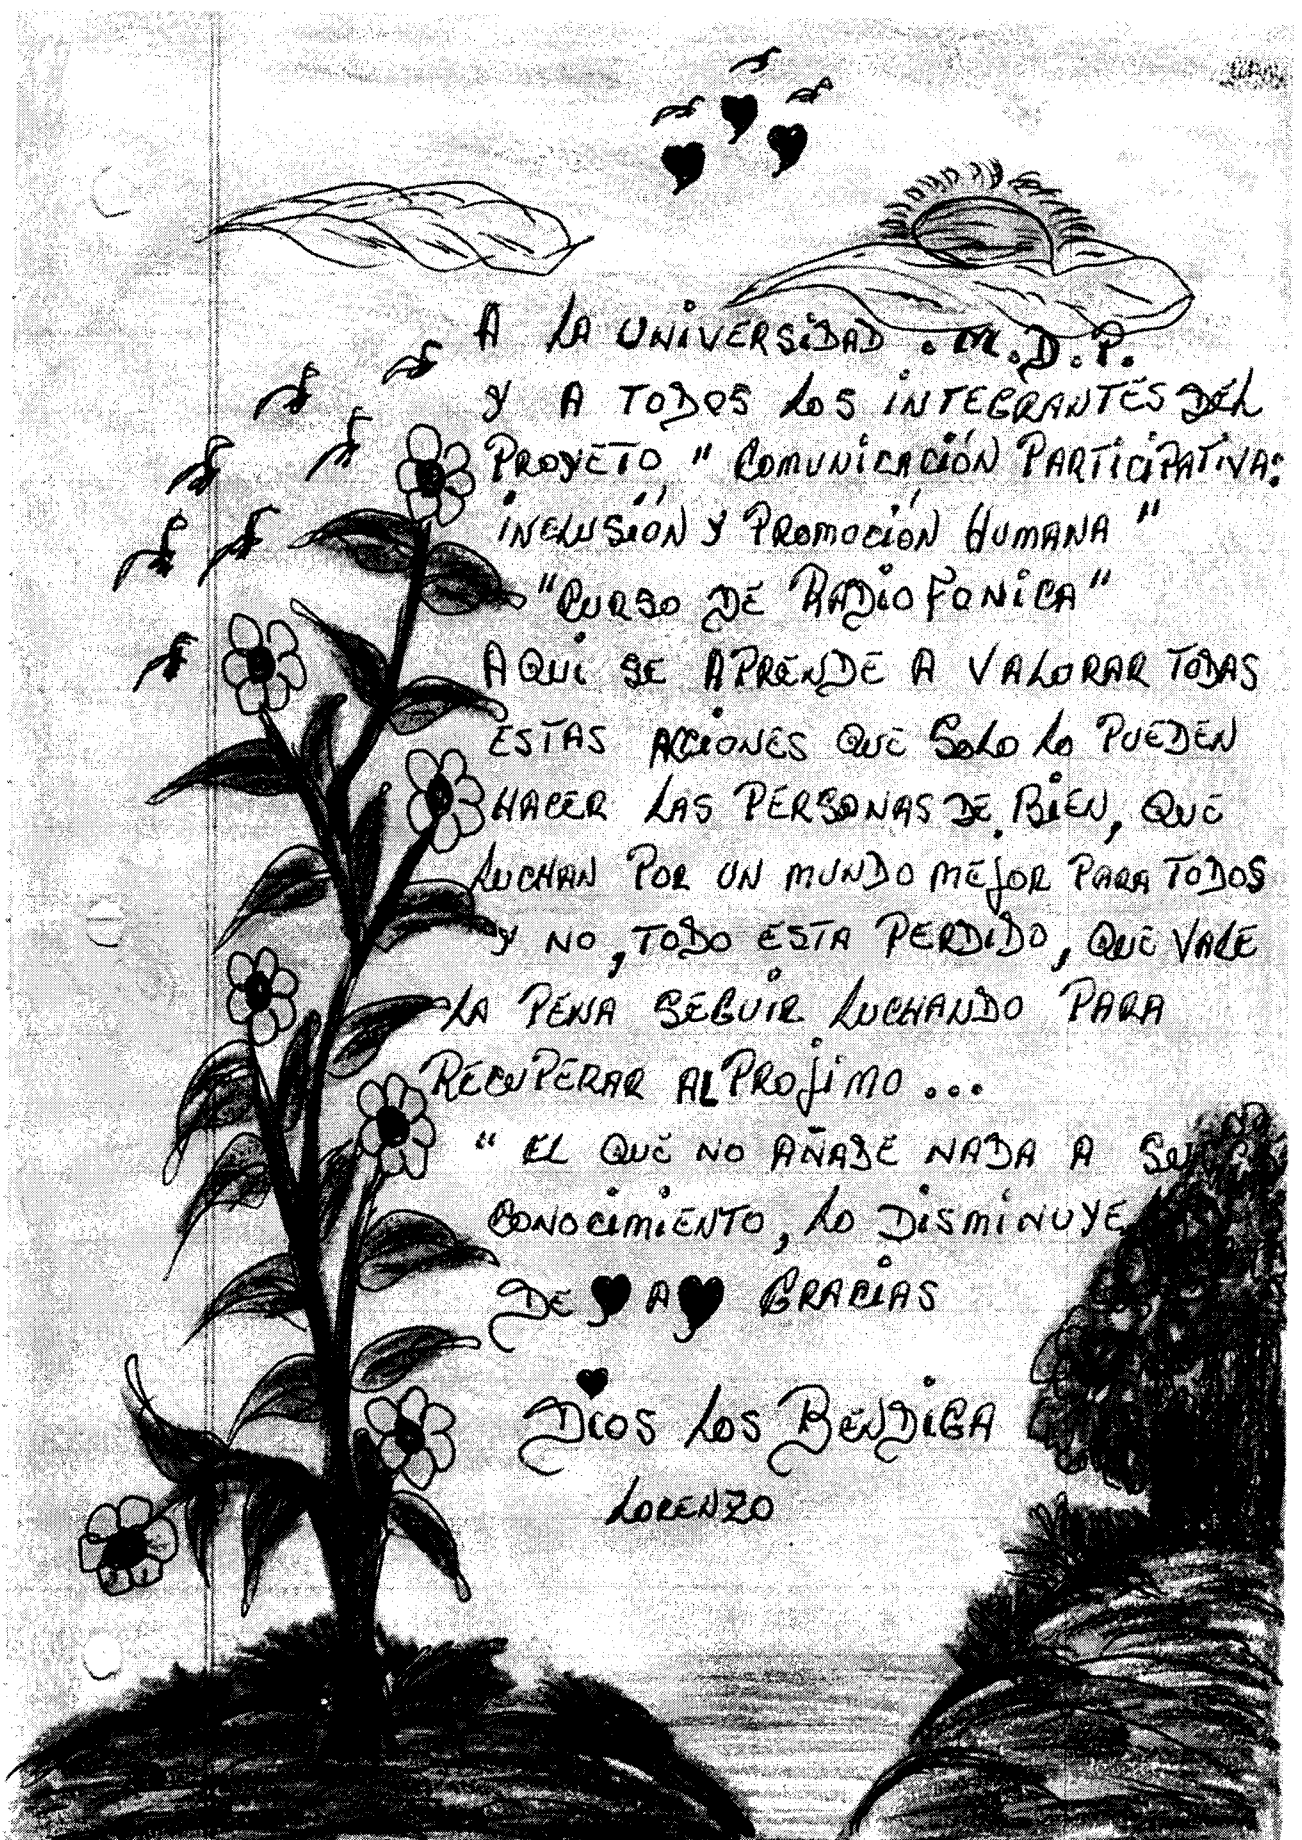 A LA UNIVERSIDAD . M.D.P.
Y A TODOS LOS INTEGRANTES DEL
PROYETO " COMUNICACIÓN PARTICIPATIVA:
INCLUSIÓN Y PROMOCIÓN HUMANA "
"CURSO DE RADIOFONICA"
AQUI SE APRENDE A VALORAR TODAS
ESTAS ACCIONES QUE SOLO LO PUEDEN
HACER LAS PERSONAS DE BIEN, QUE
LUCHAN POR UN MUNDO MEJOR PARA TODOS
Y NO, TODO ESTA PERDIDO, QUE VALE
LA PENA SEGUIR LUCHANDO PARA
RECUPERAR AL PROJIMO ...
" EL QUE NO AÑADE NADA A SU
CONOCIMIENTO, LO DISMINUYE
DE A GRACIAS
DIOS LOS BENDIGA
LORENZO